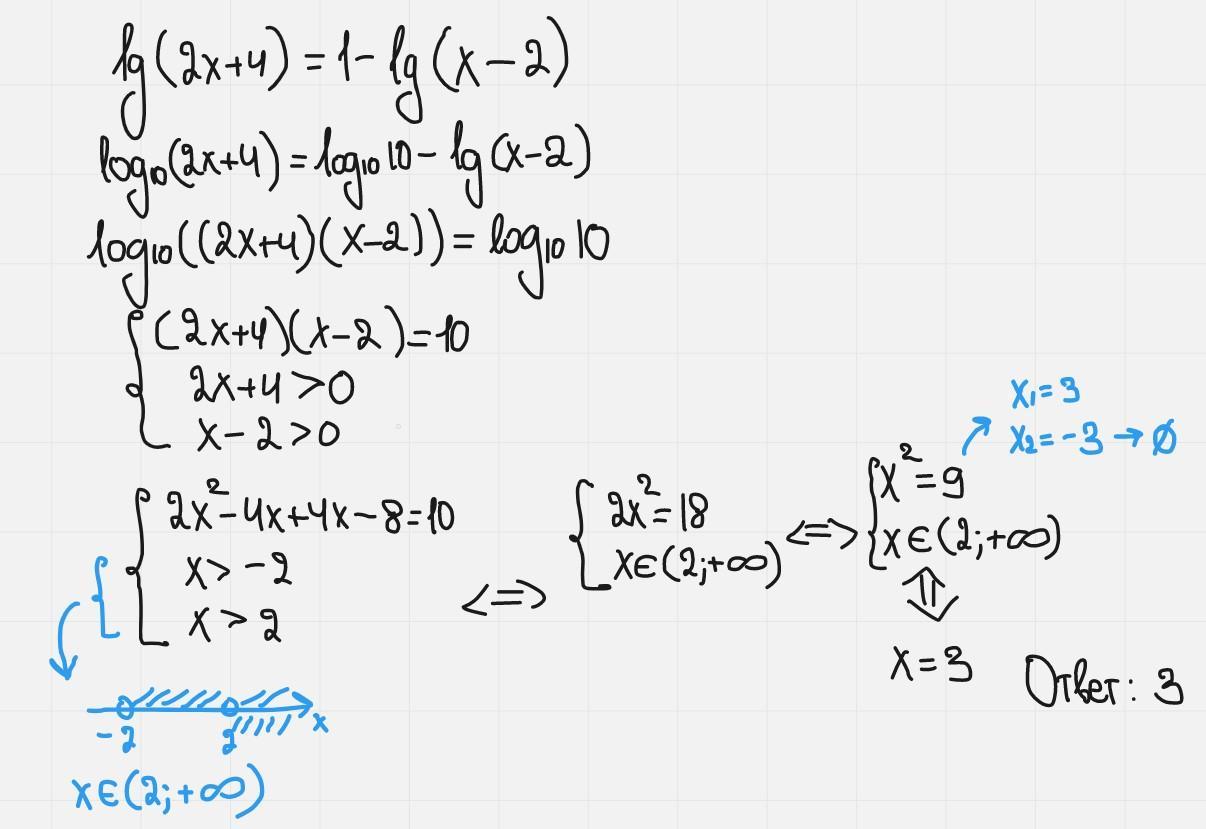 lg(2x+4) = 1 - lg(x-2)
log₁₀(2x+4) = log₁₀ 10 - lg(x-2)
log₁₀((2x+4)(x-2)) = log₁₀ 10
{ (2x+4)(x-2) = 10
2x+4 > 0
x - 2 > 0
{ 2x² - 4x + 4x - 8 = 10
x > -2
x > 2
-2 2 x
x ∈ (2; +∞)
<=>
{ 2x² = 18
x ∈ (2; +∞)
<=>
{ x² = 9
x ∈ (2; +∞)
x₁ = 3
x₂ = -3 → ∅
⇕
x = 3
Ответ: 3